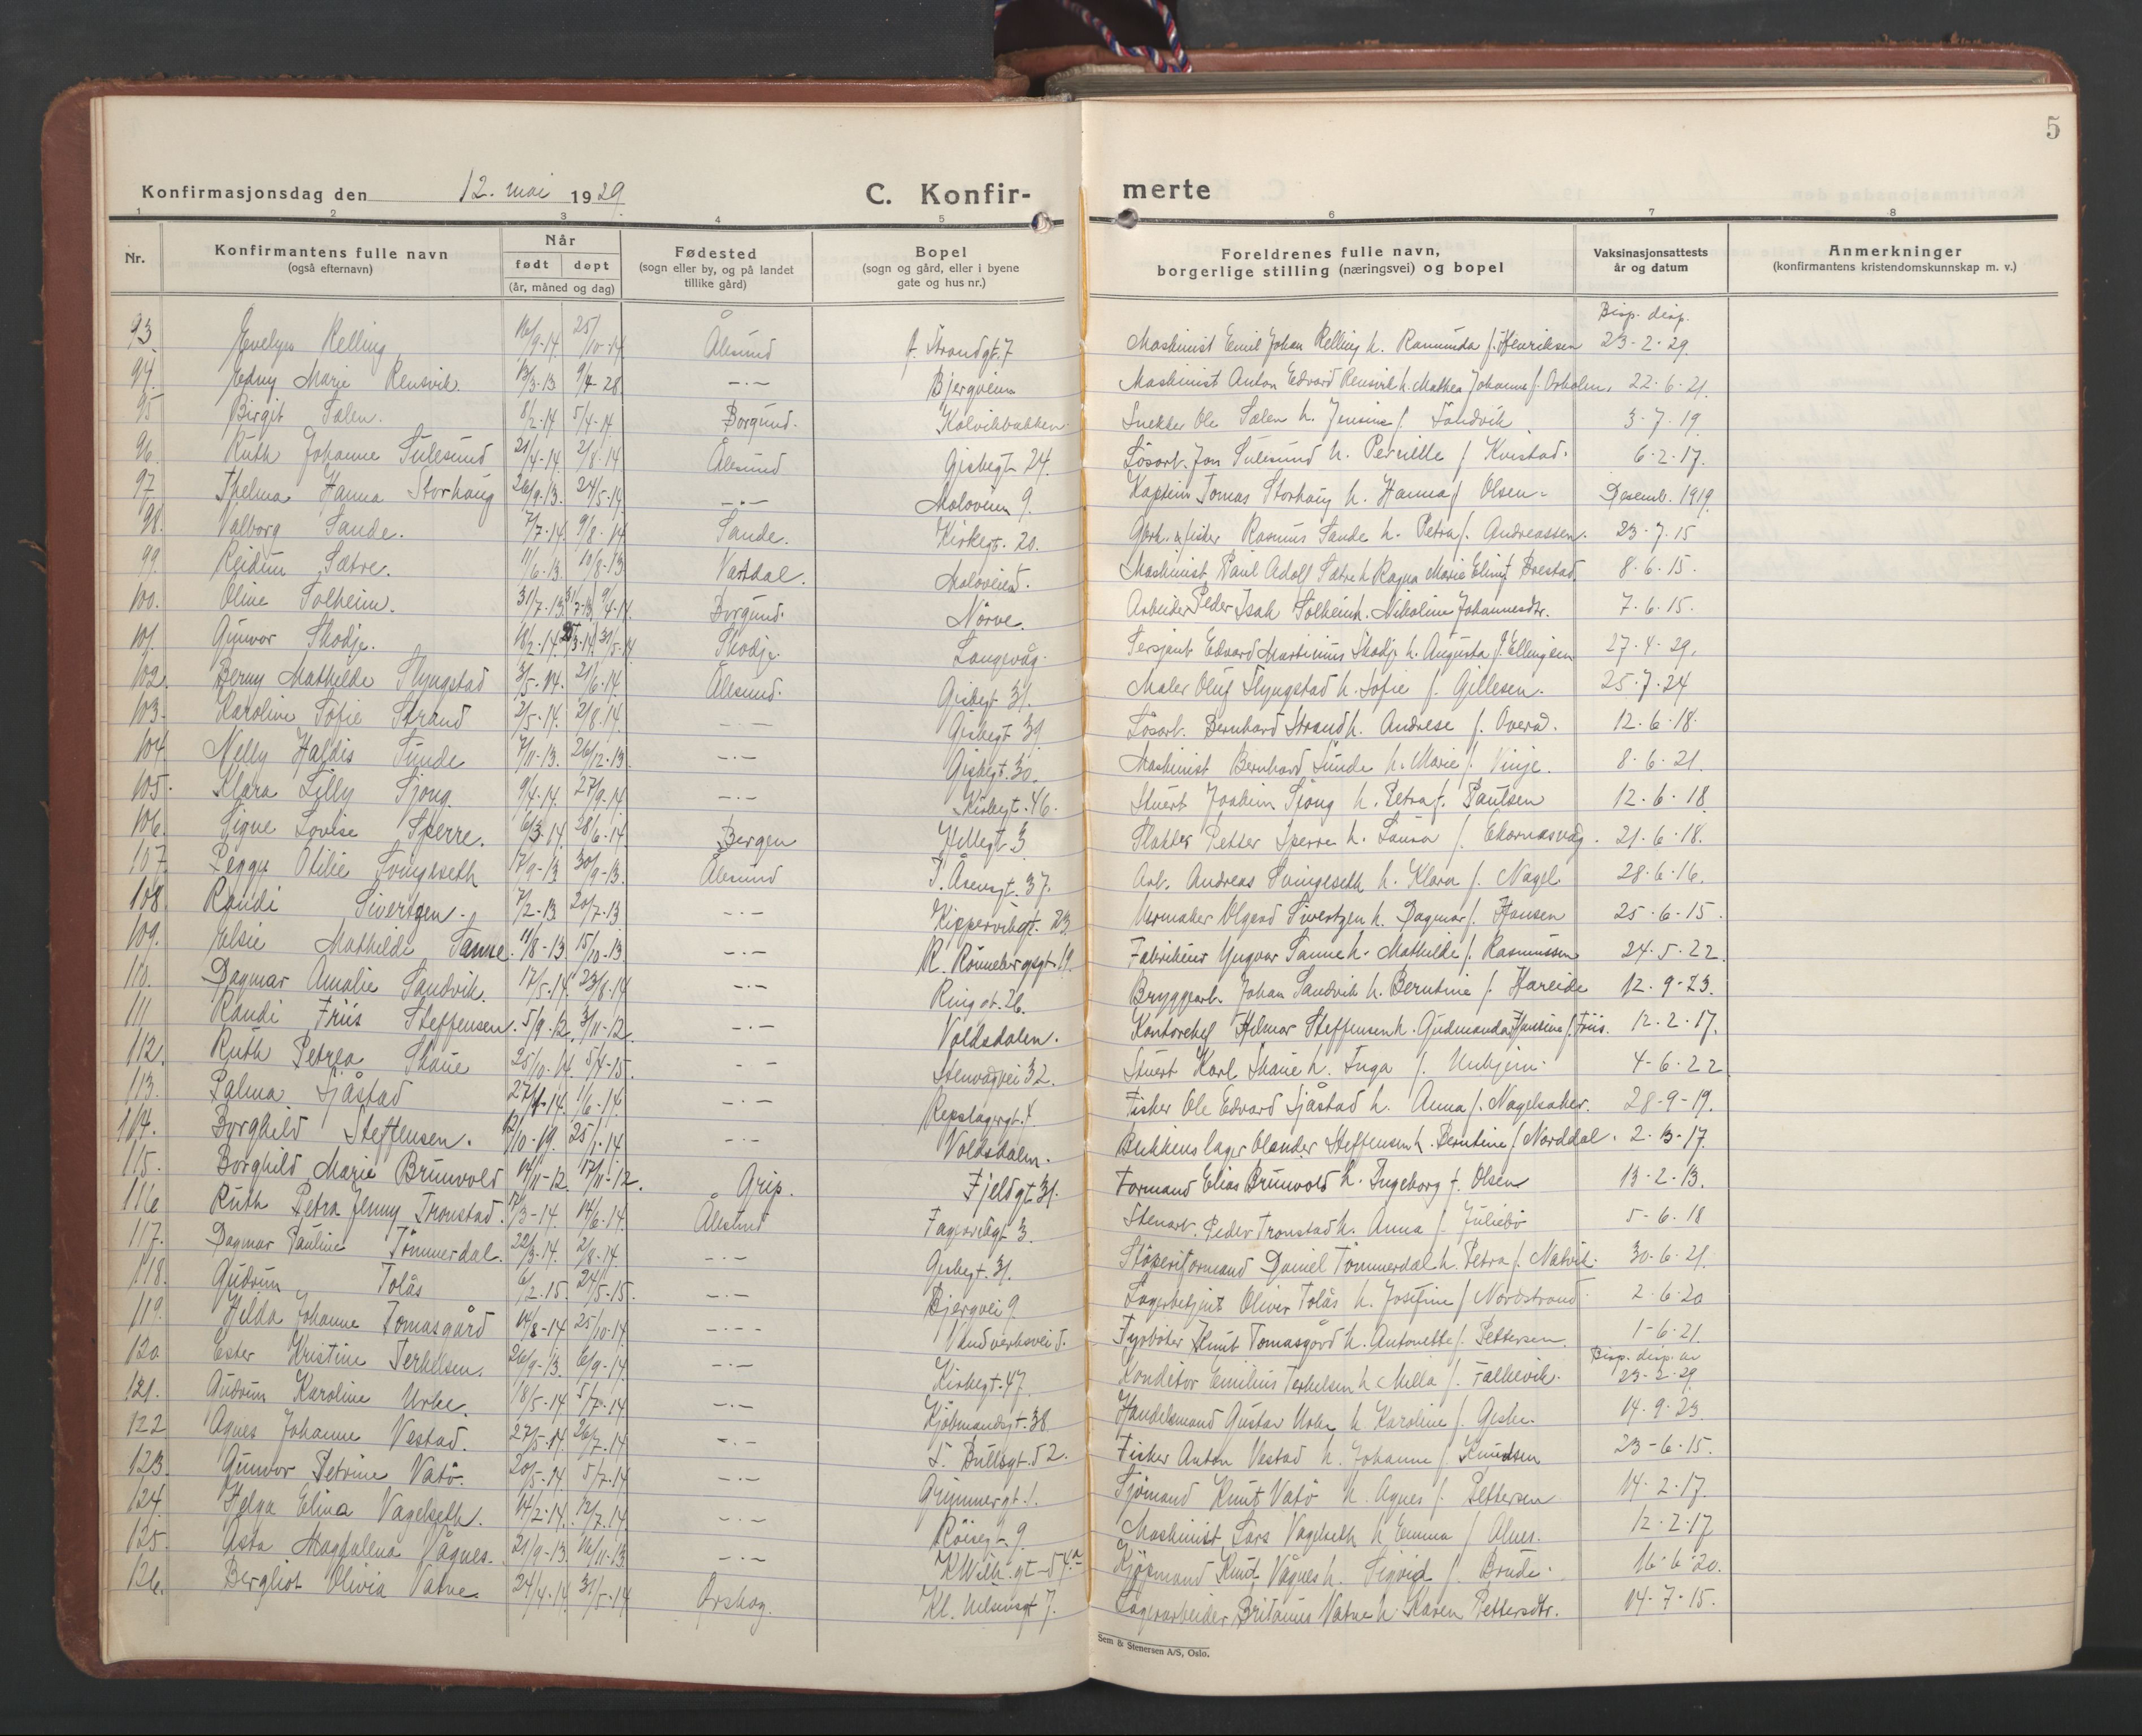 5
Konfirmasjonsdag den 12. mai 1929.
C. Konfirmerte
1 2 3 4 5 6 7 8
Nr.
Konfirmantens fulle navn
(også efternavn)
Når
født døpt
(år, måned og dag)
Fødested
(sogn eller by, og på landet
tillike gård)
Bopel
(sogn og gård, eller i byene
gate og hus nr.)
Foreldrenes fulle navn,
borgerlige stilling (næringsvei) og bopel
Vaksinasjonsattests
år og datum
Anmerkninger
(konfirmantens kristendomskunnskap m. v.)
Bisp. disp.
93 Evelyn Relling 16/9-14 25/10-14 Ålesund Strandgt. 7 Maskinist Emil Johan Relling h. Ramunda f. Henriksen 23-2-29
94. Edny Marie Rensvik. 13/3-13 9/4-28 -.- Bjergheim Maskinist Anton Edvard Rensvik h. Mathea Johanne f. Osholm. 22-6-21.
95 Birgit Sølen. 8/2-14 5/4-14 Borgund. Kolvikbakken Snekker Ole Sølen h. Jensine f. Sandvik. 3-7-19
96. Ruth Johanne Sulesund 21/4-14. 2/8-14 Ålesund Gisbegt 24. Løsarb. Jon Sulesund h. Pernille f. Kvistad. 6-2-17.
97. Thelma Hanna Storhaug 26/9-13. 24/5-14. -.- Moloveien 9. Kaptein Tomas Storhaug h. Hanna f. Olsen. Desemb. 1919.
98. Valborg Sande. 7/7-14. 9/8-14 Sande. Kirkegt. 20. Gårdb. & fisker Rasmus Sande h. Petra f. Andreassen. 23-7-15
99. Reidun Sætre. 11/6-13. 10/8-13 Vartdal. Moloveien Maskinist Paul Adolf Sætre h. Ragna Marie Eline f. Brestad 8-6-15.
100. Oline Solheim. 31/7-13 9/4-14. Borgund. Nørve. Arbeider Peder Isak Solheim h. Nikoline Johannesdtr. 7-6-15.
101. Gunvor Skodje. 18/2-14. 31/5-14 Skodje. Langevåg. Sersjant Edvard Martinius Skodje h. Augusta f. Ellingsen 27-4-29.
102. Berny Mathilde Slyngstad 3/5-14. 21/6-14. Ålesund. Gisbegt 31. Maler Oluf Slyngstad h. Sofie f. Gillesen. 25-7-24
103. Karoline Sofie Strand 2/5-14. 2/8-14. -.- Gisbegt 39. Løsarb. Bernhard Strand h. Andrese f. Overå. 12-6-18.
104. Nelly Haldis Sunde 7/11-13. 26/12-13. -.- Gisbegt. 30. Maskinist Bernhard Sunde h. Marie f. Vinje. 8-6-21.
105. Klara Lilly Sjong. 9/4-14. 27/9-14 -.- Kirkegt. 46. Stuert Joakim Sjong h. Petra f. Paulsen 12-6-18
106. Signe Lovise Sperre. 6/3-14. 28/6-14 Bergen Hellegt 3 Slakter Petter Sperre h. Laura f. Ekornesvåg. 21-6-18.
107. Peggy Otilie Svingeseth 17/9-13 30/9-13. Ålesund I. Åsensgt. 37. Arb. Andreas Svingeseth h. Klara f. Nagel. 28-6-16.
108 Randi Sivertzen. 7/2-13 20/7-13 -.- Kippervikgt. 23. Urmaker Olgard Sivertzen h. Dagmar f. Hansen 25-6-15.
109. Elsie Mathilde Sanne. 11/8-13 15/10-13 -.- R. Rønnebergsgt. 19. Fabrikeier Yngvar Sanne h. Mathilde f. Rasmussen 24-5-22.
110. Dagmar Amalie Sandvik. 17/5-14. 23/8-14 -.- Ringgt. 26. Bryggearb. Johan Sandvik h. Berntine f. Hareide 12-9-23.
111 Randi Friis Steffensen. 5/9-12. 3/11-12. -.- Voldsdalen. Kontorchef Hilmar Steffensen h. Gudmunda Hansine f. Friis. 12-2-17.
112. Ruth Petrea Skaue 25/10-14. 5/4-15. - - Stenvågvei 32. Stuert Karl Skaue h. Inga f. Unhjem. 4-6-22
113. Palma Sjåstad 27/4-14. 1/6-14 -.- Repslagergt. 4. Fisker Ole Edvard Sjåstad h. Anna f. Nagelsaker. 28-9-19.
114. Borghild Steffensen. 25/1-14. -.- Voldsdalen. Blikkenslager Olander Steffensen h. Berntine f. Norddal. 2-3-17.
115. Borghild Marie Brunvold 14/11-12. 17/11-12. Grip. Fjeldgt. 31. Formand Elias Brunvold h. Ingeborg f. Olsen 13-2-13.
116 Ruth Petra Jenny Tronstad. 17/3-14. 14/6-14. Ålesund Fagerligt 3. Stenarb. Peder Tronstad h. Anna f. Juliebø 5-6-18
117. Dagmar Pauline Tømmerdal. 22/3-14. 2/8-14. -.- Gisbegt. 31. Støperiformand Daniel Tømmerdal h. Petra f. Natvik. 30-6-21.
118. Gudrun Tolås 6/2-15. 24/5-15. -.- Bjergvei 9. Lagerbetjent Oliver Tolås h. Josefine f. Nordstrand 2-6-20
119. Hilda Johanne Tomasgård 14/8-14 25/10-14. -.-.- Vandverksvei 5. Fyrbøter Knut Tomasgård h. Antonette f. Pettersen. 1-6-21.
Bisp. disp. av
120 Ester Kristine Terkelsen. 26/9-13. 6/9-14. -.- Kirkegt. 47. Konditor Emilius Terkelsen h. Milla f. Falkevik. 23-2-29.
121. Gudrun Karoline Urke. 18/5-14 5/7-14 -.- Kjøbmandsgt. 38. Handelsmand Gustav Urke h. Karoline f. Geske. 14-9-23.
122 Agnes Johanne Vestad. 27/5-14. 26/7-14 -.- I. Bullsgt. 52. Fisker Anton Vestad h. Johanne f. Knudsen 23-6-15.
123. Gunvor Petrine Vatø. 20/5-14. 5/7-14 -.- Grimmergt. 1. Sjømand Knut Vatø h. Agnes f. Pettersen 14-2-17.
124. Helga Elina Vagelseth. 14/2-14. 12/7-14. -.- Røiseg- 9. Maskinist Lars Vagelseth h. Emma f. Alnes. 12-2-17
125. Asta Magdalena Vågnes. 21/9-13. 16/11-13 -.- K Wilh. gt- 54a Kjøpmand Knut Vågnes h. Sigrid f. Brude. 16-6-20.
126. Bergliot Olivia Vatne. 24/4-14. 31/5-14 Ørskog. Kl. Nilsensgt 7. Lagerarbeider Britanus Vatne h. Karen Pettersdtr. 14-7-15.
Sem & Stenersen A/S, Oslo.